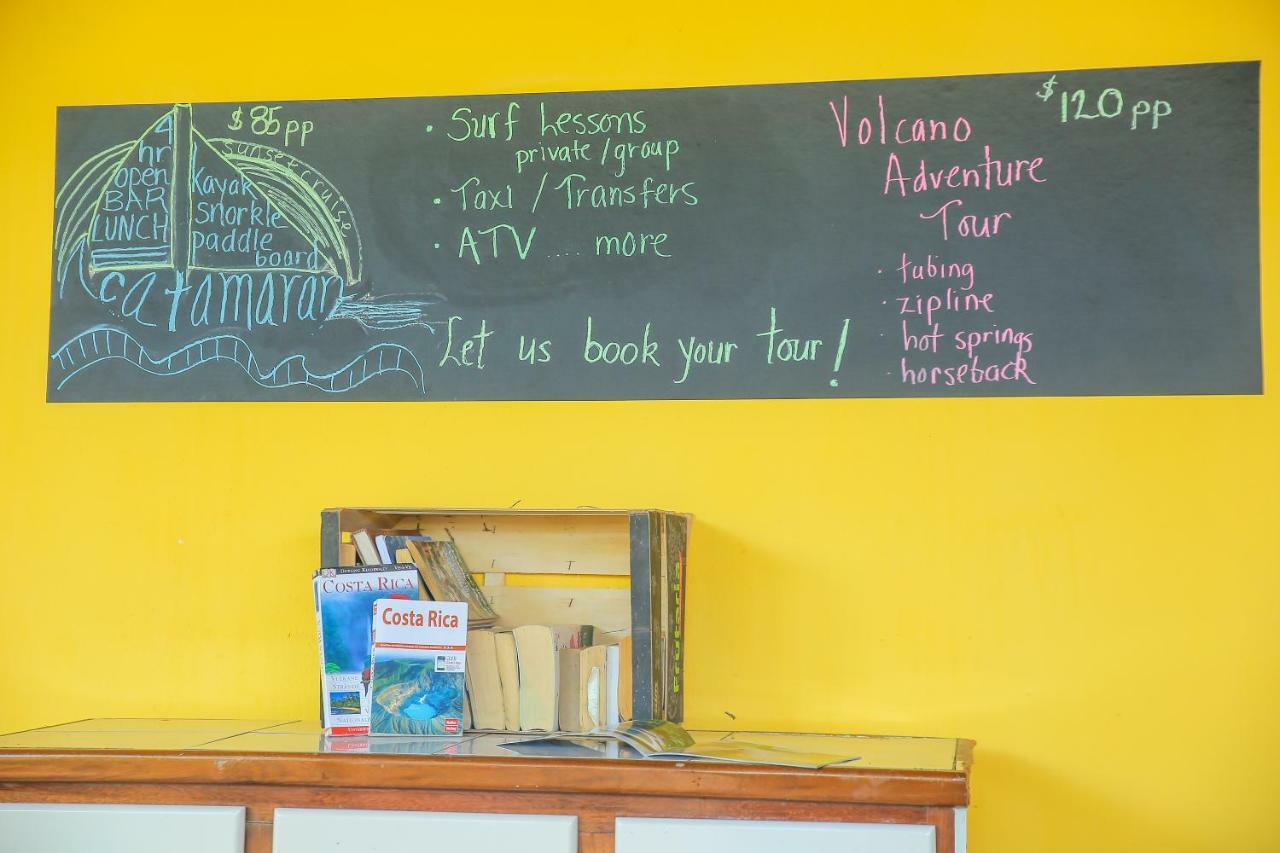 $85 pp
sunset cruise
4
hr
open
BAR
LUNCH
Kayak
Snorkle
paddle
board
catamaran
• Surf Lessons
private / group
• Taxi / Transfers
• ATV .... more
Let us book your tour!
$120 pp
Volcano
Adventure
Tour
• tubing
• zipline
• hot springs
• horseback
COSTA RICA
VULKANE
STRÄNDE
NATIONAL
Costa Rica